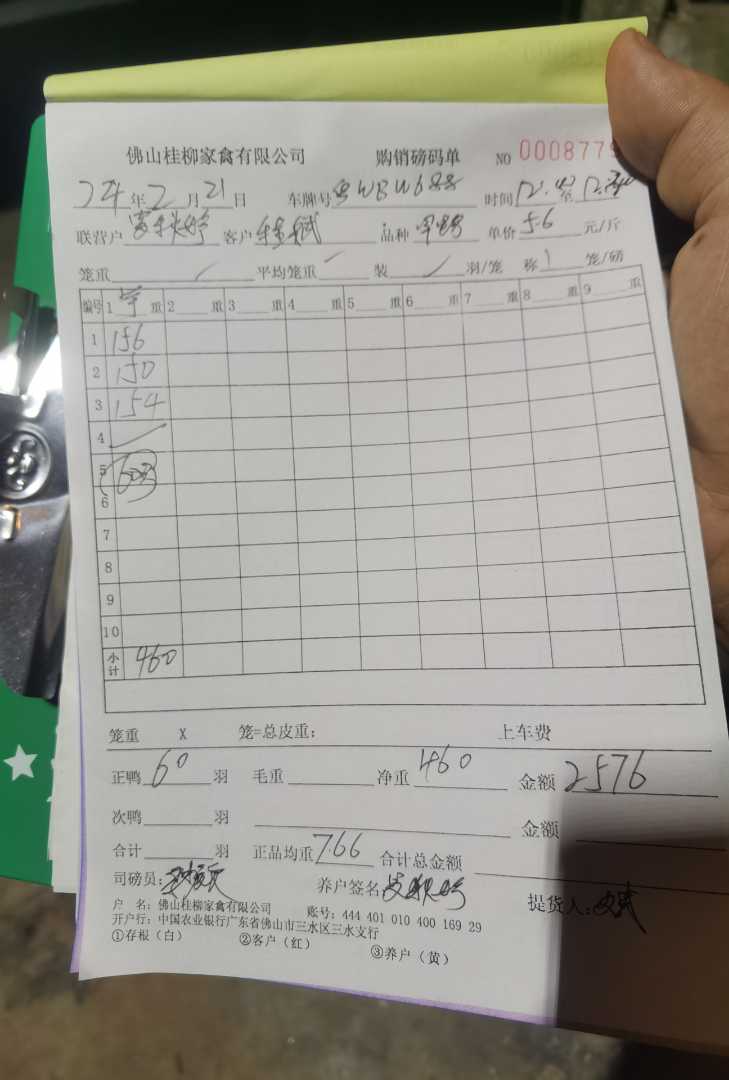 佛山桂柳家禽有限公司 购销磅码单 NO 0008779
24年2月21日 车牌号 WBW688 时间 至
联营户 客户 品种 单价 5.6 元/斤
笼重 / 平均笼重 / 装 / 羽/笼 称 1 笼/磅
编号 1 重 2 重 3 重 4 重 5 重 6 重 7 重 8 重 9 重
1 156
2 150
3 154
4
5
6
7
8
9
10
小计 460
笼重 X 笼=总皮重: 上车费
正鸭 60 羽 毛重 净重 460 金额 2576
次鸭 羽 金额
合计 羽 正品均重 766 合计总金额
司磅员: 养户签名 提货人:
户 名: 佛山桂柳家禽有限公司 账号: 444 401 010 400 169 29
开户行: 中国农业银行广东省佛山市三水区三水支行
①存根(白) ②客户(红) ③养户(黄)